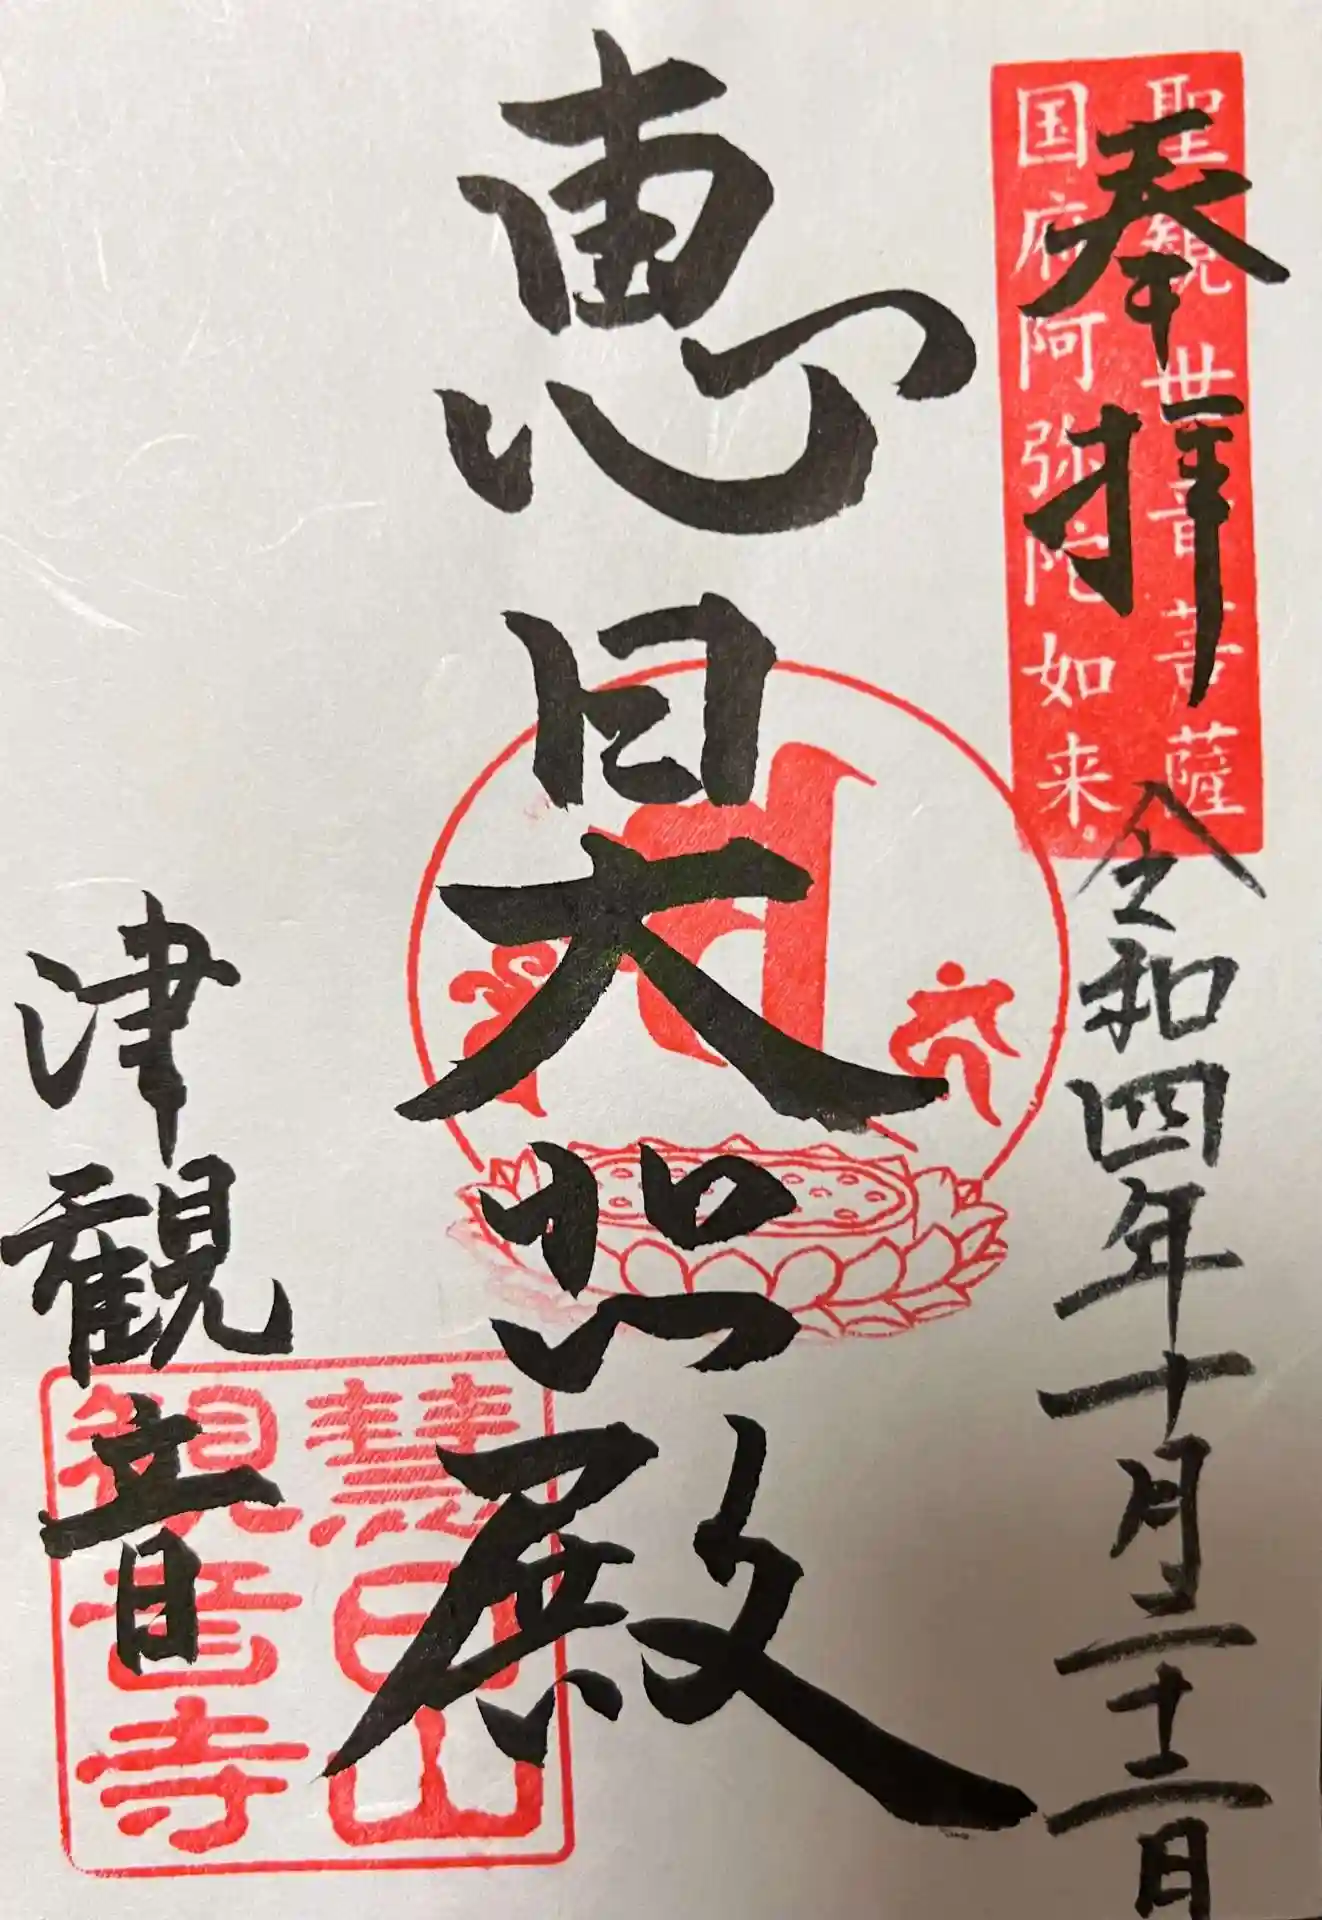 奉拝
聖観世音菩薩
国府阿弥陀如来。
令和四年十月二十二日
恵日大照殿
津観音
慧日山
観音寺